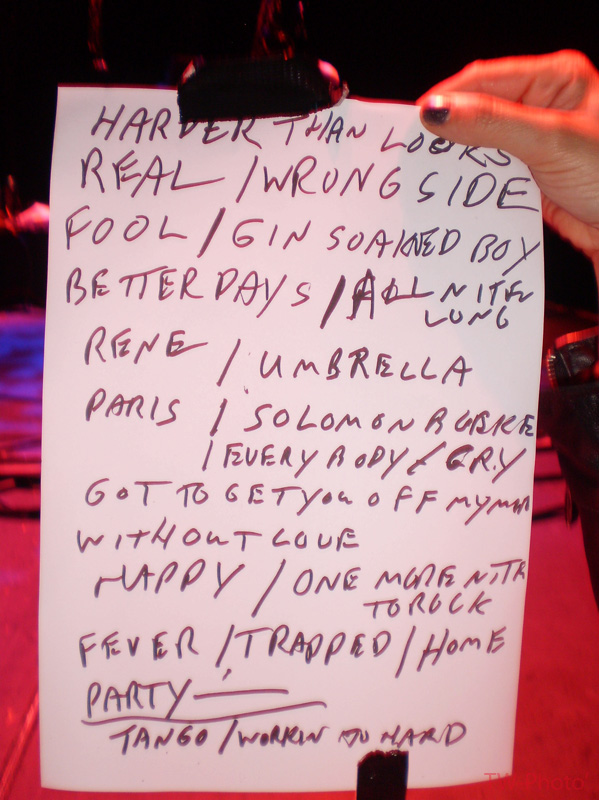 HARDER THAN LOOKS
REAL / WRONG SIDE
FOOL / GIN SOAKED BOY
BETTER DAYS / ALL NITE
LONG
RENE / UMBRELLA
PARIS / SOLOMON BURKE
/ EVERY BODY / CRY
GOT TO GET YOU OFF MY MIND
WITHOUT LOVE
HAPPY / ONE MORE NITE
TO ROCK
FEVER / TRAPPED / HOME
PARTY —
TANGO / WORKIN TO HARD